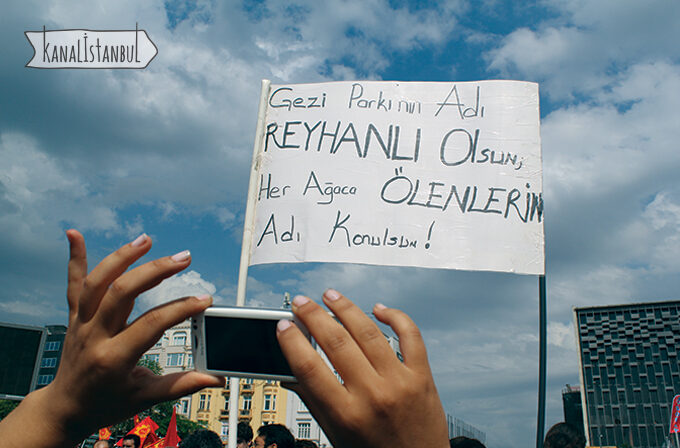 KANALİSTANBUL
Gezi Parkı'nın Adı
REYHANLI Olsun;
Her Ağaca ÖLENLERİN
Adı Konulsun!